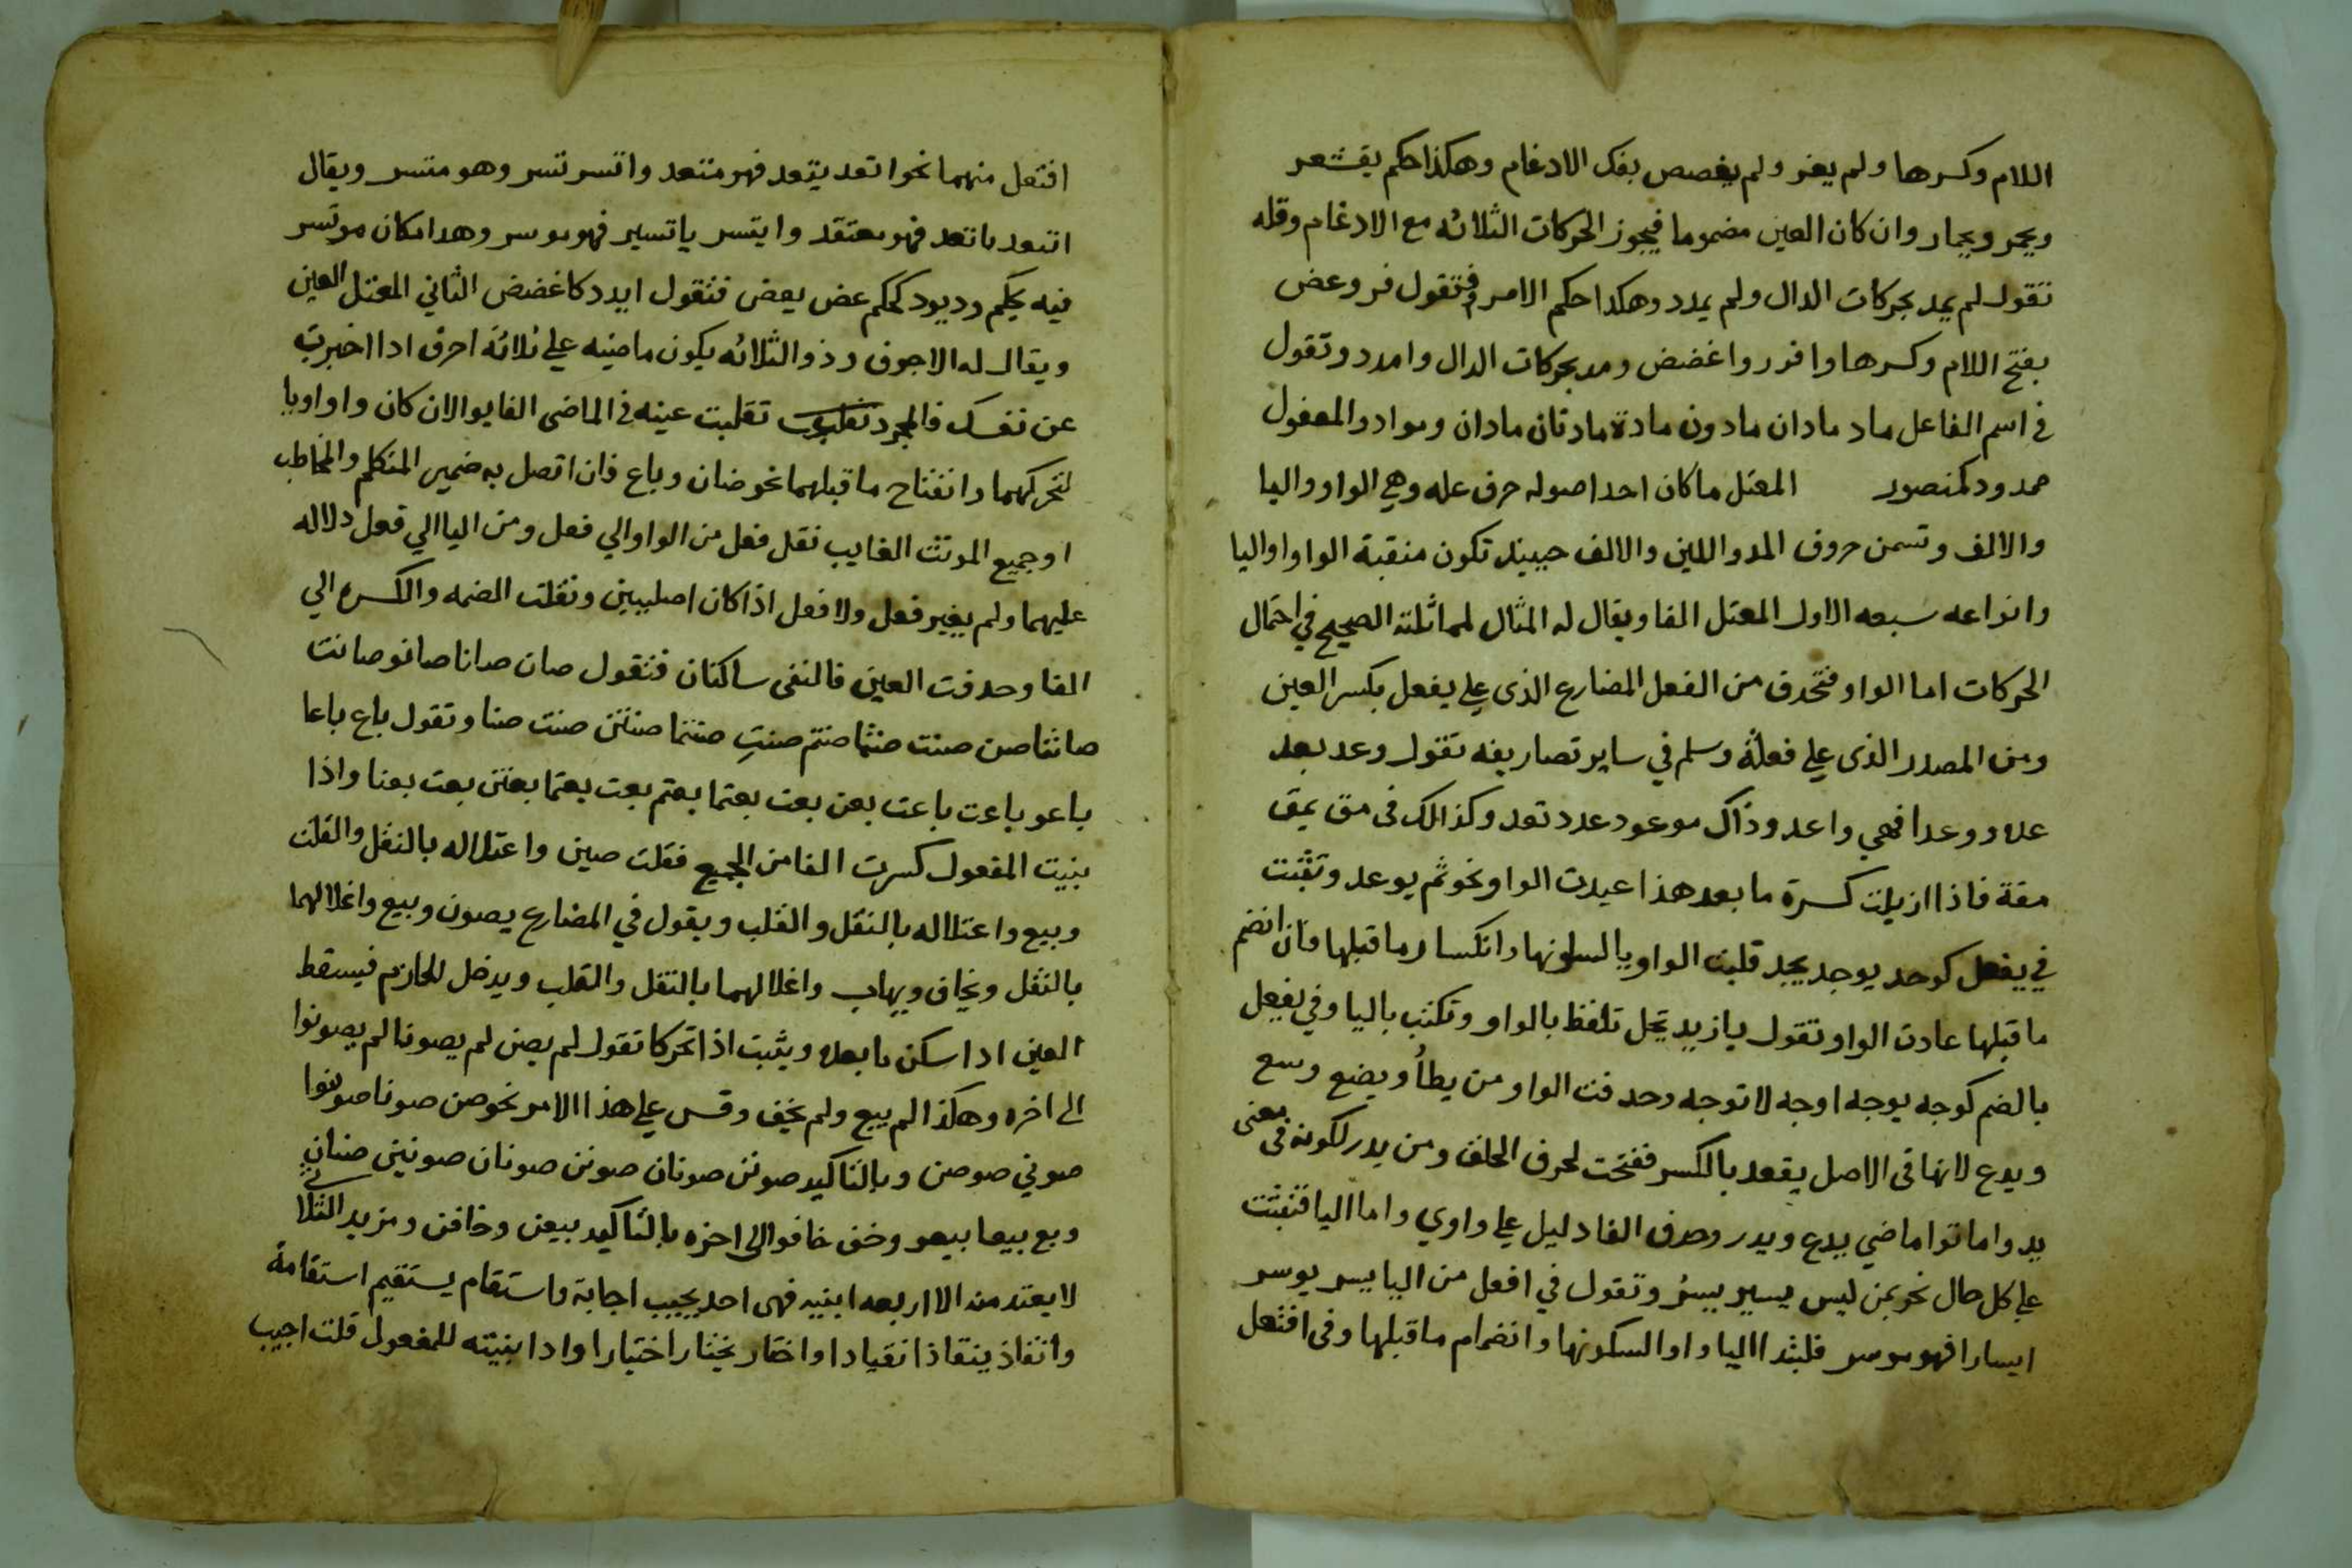 اللام وكسرها ولم يفر ولم يغضض بفك الادغام وهكذا حكم يقشعر
ويحمر ويحمار وان كان العين مضموما فيجوز الحركات الثلاثه مع الادغام وفكه
تقول لم يمد بحركات الدال ولم يمدد وهكدا حكم الامر فتقول فر وعض
بفتح اللام وكسرها وافرر واغضض ومد بحركات الدال وامدد وتقول
في اسم الفاعل ماد مادان مادون مادة مادتان مادان ومواد والمفعول
ممدود كمنصور المعتل ماكان احد اصوله حرف عله وهي الواو واليا
والالف وتسمن حروف المد واللين والالف حينيد تكون منقبة الواو او اليا
وانواعه سبعه الاول المعتل الفا ويقال له المثال لمماثلته الصحيح في احتمال
الحركات اما الواو فتحدف من الفعل المضارع الذى علي يفعل بكسر العين
ومن المصدر الذى علي فعلة وسلم في ساير تصاريفه تقول وعد يعد
عده ووعدا فهي واعد وذاك موعود عدد تعد وكذالك فى مق يمق
مقة فاذا ازيلت كسرة ما بعد هذا عيدت الواو نحو ثم يوعد وتثبت
في يفعل كوحد يوجد يجد قلبت الواو يا لسلونها وانكسار ما قبلها فان انضم
ما قبلها عادت الواو تقول يا زيد تجل تلفظ بالواو وتكتب باليا وفي يفعل
بالضم كوجه يوجه اوجه لا توجه وحد فت الواو من يطأ ويضع وسع
ويدع لانها فى الاصل يفعد بالكسر ففتحت لحرف الحلق ومن يدر لكونه فى معنى
يد واماتوا ماضي يدع ويدر وحدف الفا دليل علي واوي واما اليا فتثبت
علي كل حال نحو يمن ليس يسير يسر وتقول في افعل من اليا يسر يوسر
ايسارا فهو موسر فلبتد االيا واوا لسكونها وانضمام ما قبلها وفى افتعل
افتعل منهما نحو اتعد يتعد فهو متعد واتسر تسر وهو متسر ويقال
اتبعد ياتعد فهو معتقد وايتسر ياتسير فهو موسر وهدا مكان موتسر
فيه يحكم ود يود كحكم عض يعض فتقول ايدد كاغضض الثاني المعتل العين
ويقال له الاجوف وذو الثلاثه يكون ماضيه علي ثلاثة احرف ادا اخبرت
عن نفسك فالمجرد تقلبت عينه في الماضى الفا يوالان كان واو اويا
لتحركهما وانفتاح ما قبلهما نحو ضان وباع فان اتصل به ضمير المتكلم والمخاطب
او جميع المونث الغايب نقل فعل من الواو الي فعل ومن اليا الي فعل دلاله
عليهما ولم يغير فعل ولا فعل اذا كان اصليين ونقلت الضمه والكسره الي
الفا وحدفت العين فالنفى ساكنان فتقول صان صانا صانو صانت
صانتا صن صنت صنتما صنتم صنتِ صنتما صنتن صنت صنا وتقول باع باعا
باعو باعت باعت بعن بعت بعتما بعتم بعت بعتما بعتن بعت بعنا واذا
بنيت المفعول كسرت الفا من الجميع فقلت صين واعتلاله بالنقل والقلت
وبيع واعتلاله بالنقل والقلب ويقول في المضارع يصون وبيع واغلالهما
بالنقل ويخاف ويهاب واغلالهما بالنقل والقلب ويدخل للجازم فيسقط
العين ادا سكن ما بعده ويثبت اذا تحركا تقول لم يصن لم يصونا لم يصونوا
الى اخره وهكذا لم يبع ولم يخف وقس علي هذا الامر نحو صن صونا صونوا
صوني صومن وبالتاكيد صونن صونان صونن صونان صونيني صنان
وبع بيعا بيعو وخف خافو الى اخره بالتاكيد بيعن وخافن ومزيد الثلاثي
لا يعتد منه الا اربعه ابنيه فهى احد يجيب اجابة واستقام يستقيم استقامة
وانقاذ ينقاذ انقيادا واختار يختار اختيارا وادا بنيته للمفعول قلت اجيب